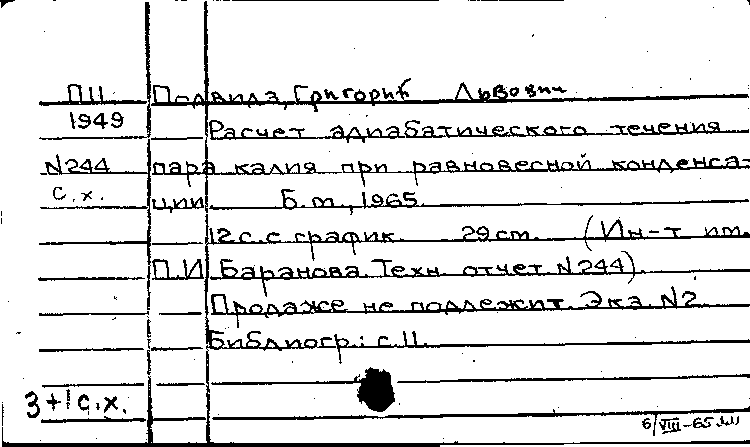 ПII Подвидз, Григорий Львович
1949 Расчет адиабатического течения
N244 пара калия при равновесной конденса-
с.х. ции. Б.м., 1965.
12 с. с график. 29 cm. (Ин-т им.
П.И. Баранова. Техн. отчет N244).
Продаже не подлежит. Экз. N2.
Библиогр.: с.11.
3+1 с.х.
6/VIII-65